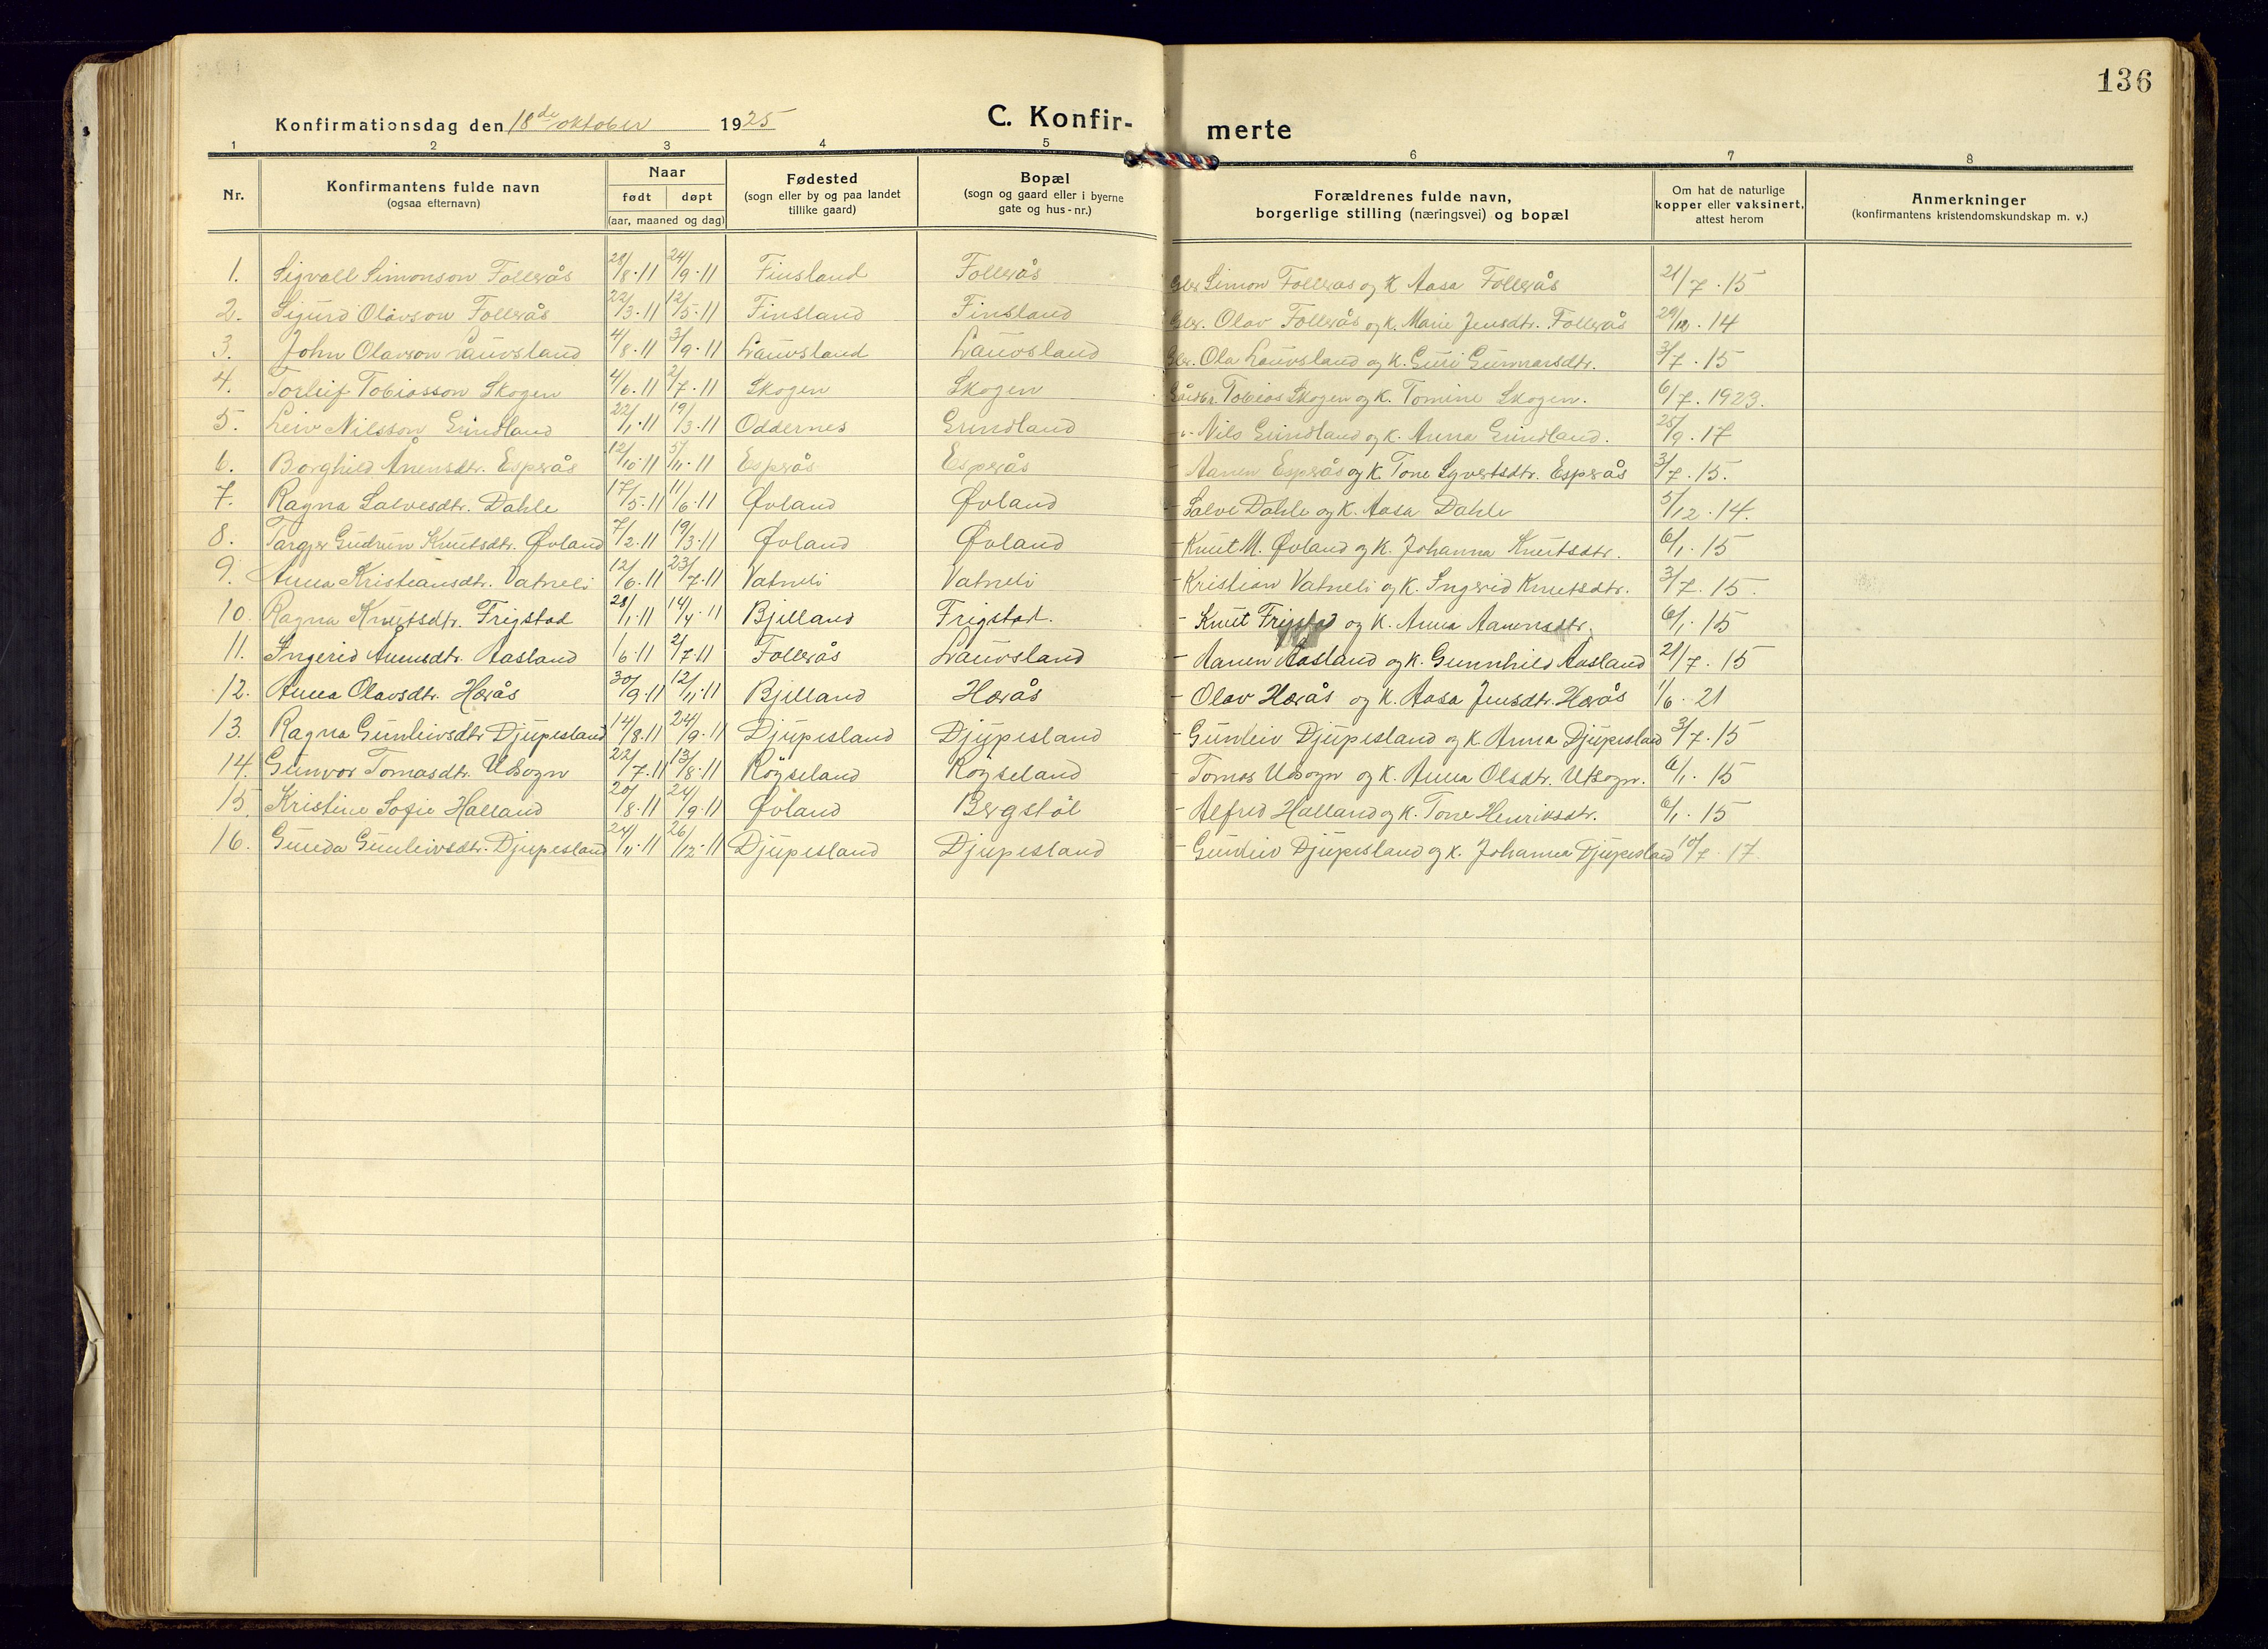 136
Konfirmationsdag den 18de oktober 1925 C. Konfir- merte
1 2 3 4 5 6 7 8
Nr. Konfirmantens fulde navn (ogsaa efternavn) Naar født døpt (aar, maaned og dag) Fødested (sogn eller by og paa landet tillike gaard) Bopæl (sogn og gaard eller i byerne gate og hus-nr.) Forældrenes fulde navn, borgerlige stilling (næringsvei) og bopæl Om hat de naturlige kopper eller vaksinert, attest herom Anmerkninger (konfirmantens kristendomskundskap m. v.)
1. Sigvall Simonson Follerås 28/8.11 24/9.11 Finsland Follerås Gbr. Simon Follerås og K. Aasa Follerås 21/7.15
2. Sigurd Olavson Follerås 22/3.11 12/5.11 Finsland Finsland Gbr. Olav Follerås og K. Marie Jensdtr. Follerås 29/12.14
3. John Olavson Lauvsland 4/8.11 3/9.11 Lauvsland Lauvsland Gbr. Ola Lauvsland og K. Guri Gunnarsdtr. 3/7.15
4. Torleif Tobiasson Skogen 4/6.11 2/7.11 Skogen Skogen Gårdbr. Tobias Skogen og K. Tomine Skogen. 6/7.1923.
5. Leiv Nilsson Grindland 22/1.11 19/3.11 Oddernes Grindland -"- Nils Grindland og K. Anna Grindland. 25/9.17
6. Borghild Ånensdtr. Esperås 12/10.11 5/11.11 Esperås Esperås - Aanen Esperås og K. Tone Syvertsdtr. Esperås 3/7.15.
7. Ragna Salvesdtr. Dahle 17/5.11 11/6.11 Øvland Øvland - Salve Dahle og K. Aasa Dahle 5/12.14.
8. Targjer Gudrun Knutsdtr. Øvland 7/2.11 19/3.11 Øvland Øvland - Knut M. Øvland og K. Johanna Knutsdtr. 6/1.15
9. Anna Kristiansdtr. Vatneli 12/6.11 23/7.11 Vatneli Vatneli - Kristian Vatneli og K. Ingerid Knutsdtr. 3/7.15.
10. Ragna Knutsdtr. Frigstad 28/1.11 14/4.11 Bjelland Frigstad. - Knut Frigstad og K. Anna Aanensdtr. 6/1.15
11. Ingerid Ånensdtr. Aasland 1/6.11 2/7.11 Follerås Lauvsland - Aanen Aasland og K. Gunnhild Aasland 21/7.15
12. Anna Olavsdtr. Herås 30/9.11 12/11.11 Bjelland Herås - Olav Herås og K. Aasa Jensdtr. Herås 1/6.21
13. Ragna Gunleivsdtr Djupesland 14/8.11 24/9.11 Djupesland Djupesland - Gunleiv Djupesland og K. Anna Djupesland 3/7.15
14. Gunvor Tomasdtr. Udsogn 22/7.11 13/8.11 Röyseland Röyseland - Tomas Udsogn og K. Anna Olsdtr. Utsogn. 6/1.15
15. Kristine Sofie Halland 20/8.11 24/9.11 Øvland Bergstöl - Alfred Halland og K. Tone Henriksdtr. 6/1.15
16. Gunda Gunleivsdtr. Djupesland 24/11.11 26/12.11 Djupesland Djupesland - Gunleiv Djupesland og K. Johanna Djupesland 10/7.17.